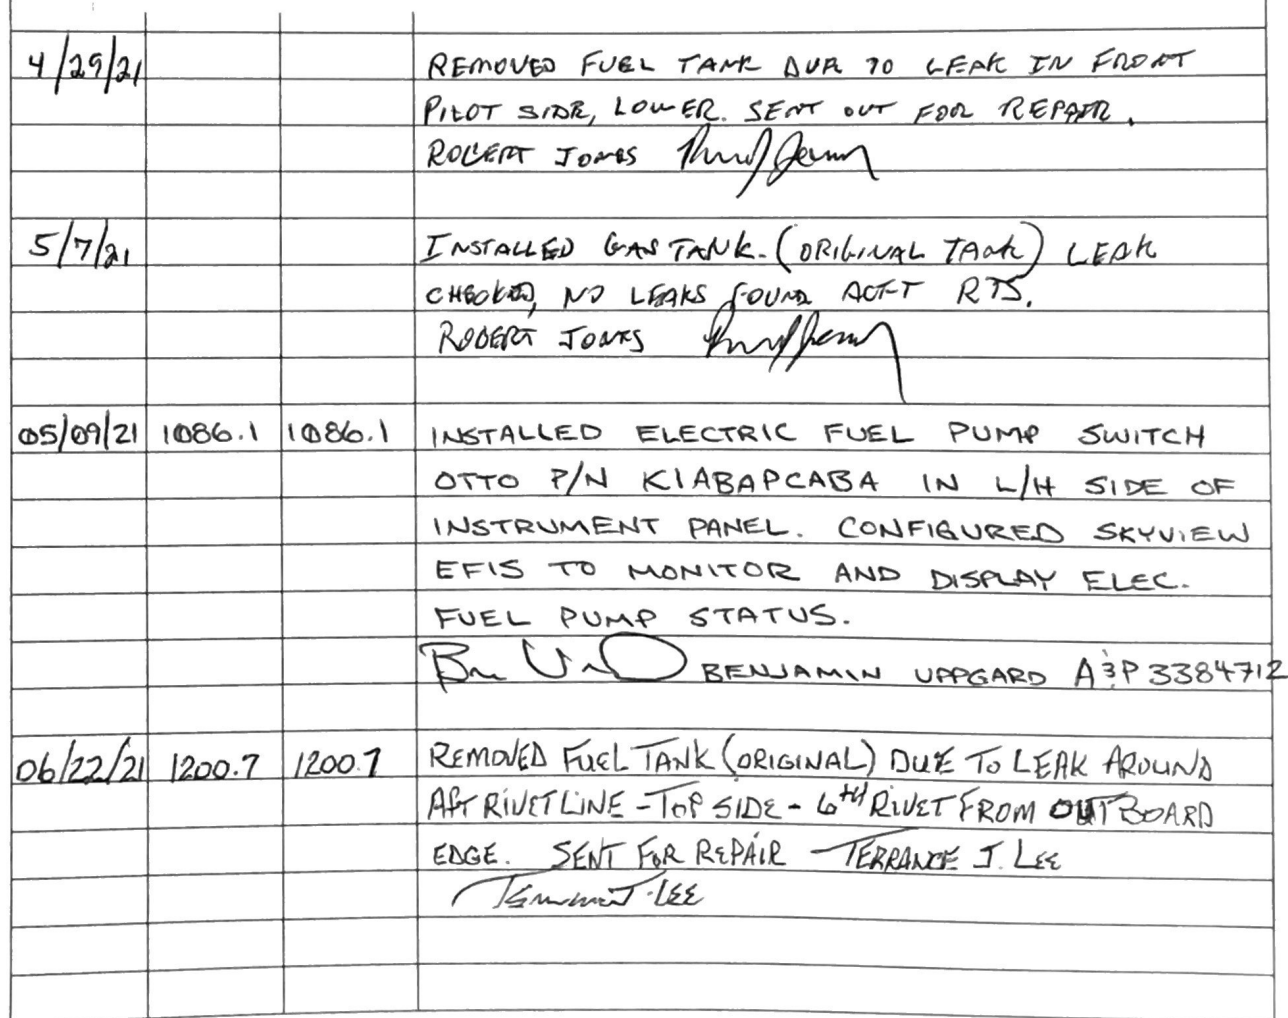 4/29/21 REMOVED FUEL TANK DUE TO LEAK IN FRONT
PILOT SIDE, LOWER. SENT OUT FOR REPAIR.
ROBERT JONES
5/7/21 INSTALLED GAS TANK. (ORIGINAL TANK) LEAK
CHECKED, NO LEAKS FOUND ACFT RTS.
ROBERT JONES
05/09/21 1086.1 1086.1 INSTALLED ELECTRIC FUEL PUMP SWITCH
OTTO P/N K1ABAPCABA IN L/H SIDE OF
INSTRUMENT PANEL. CONFIGURED SKYVIEW
EFIS TO MONITOR AND DISPLAY ELEC.
FUEL PUMP STATUS.
BENJAMIN UPPGARD A&P 3384712
06/22/21 1200.7 1200.7 REMOVED FUEL TANK (ORIGINAL) DUE TO LEAK AROUND
AFT RIVET LINE - TOP SIDE - 6TH RIVET FROM OUTBOARD
EDGE. SENT FOR REPAIR - TERRANCE J. LEE
LEE